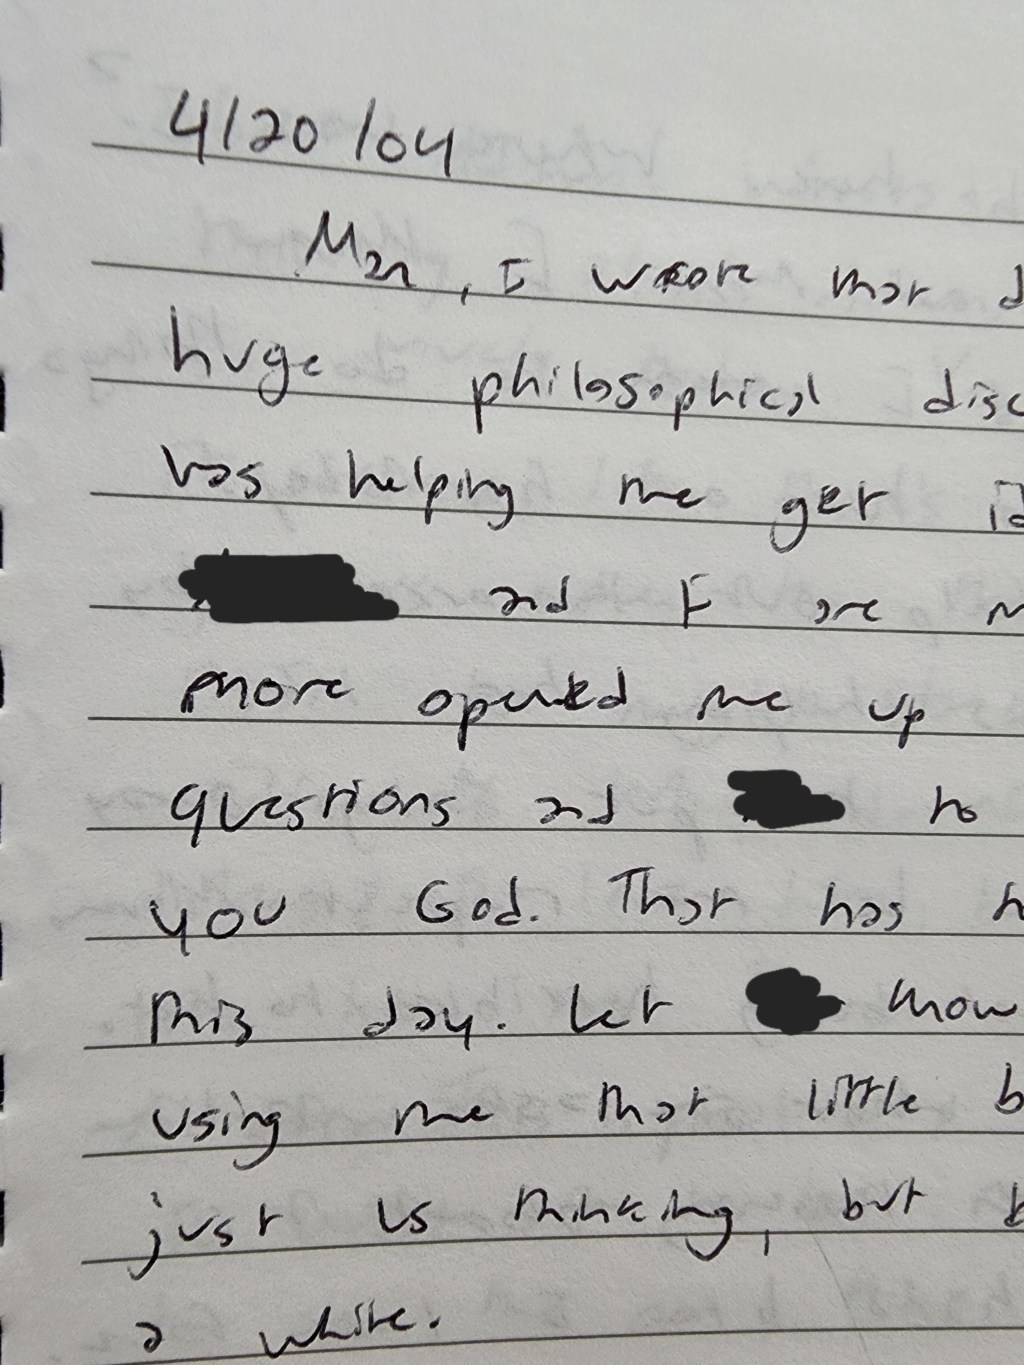 4/20/04
Man, I wrote that d
huge philosophical disc
was helping me get id
and I are m
more opened me up
questions and to
you God. That has h
this day. Let know
using me that little b
just us thinking, but b
a while.